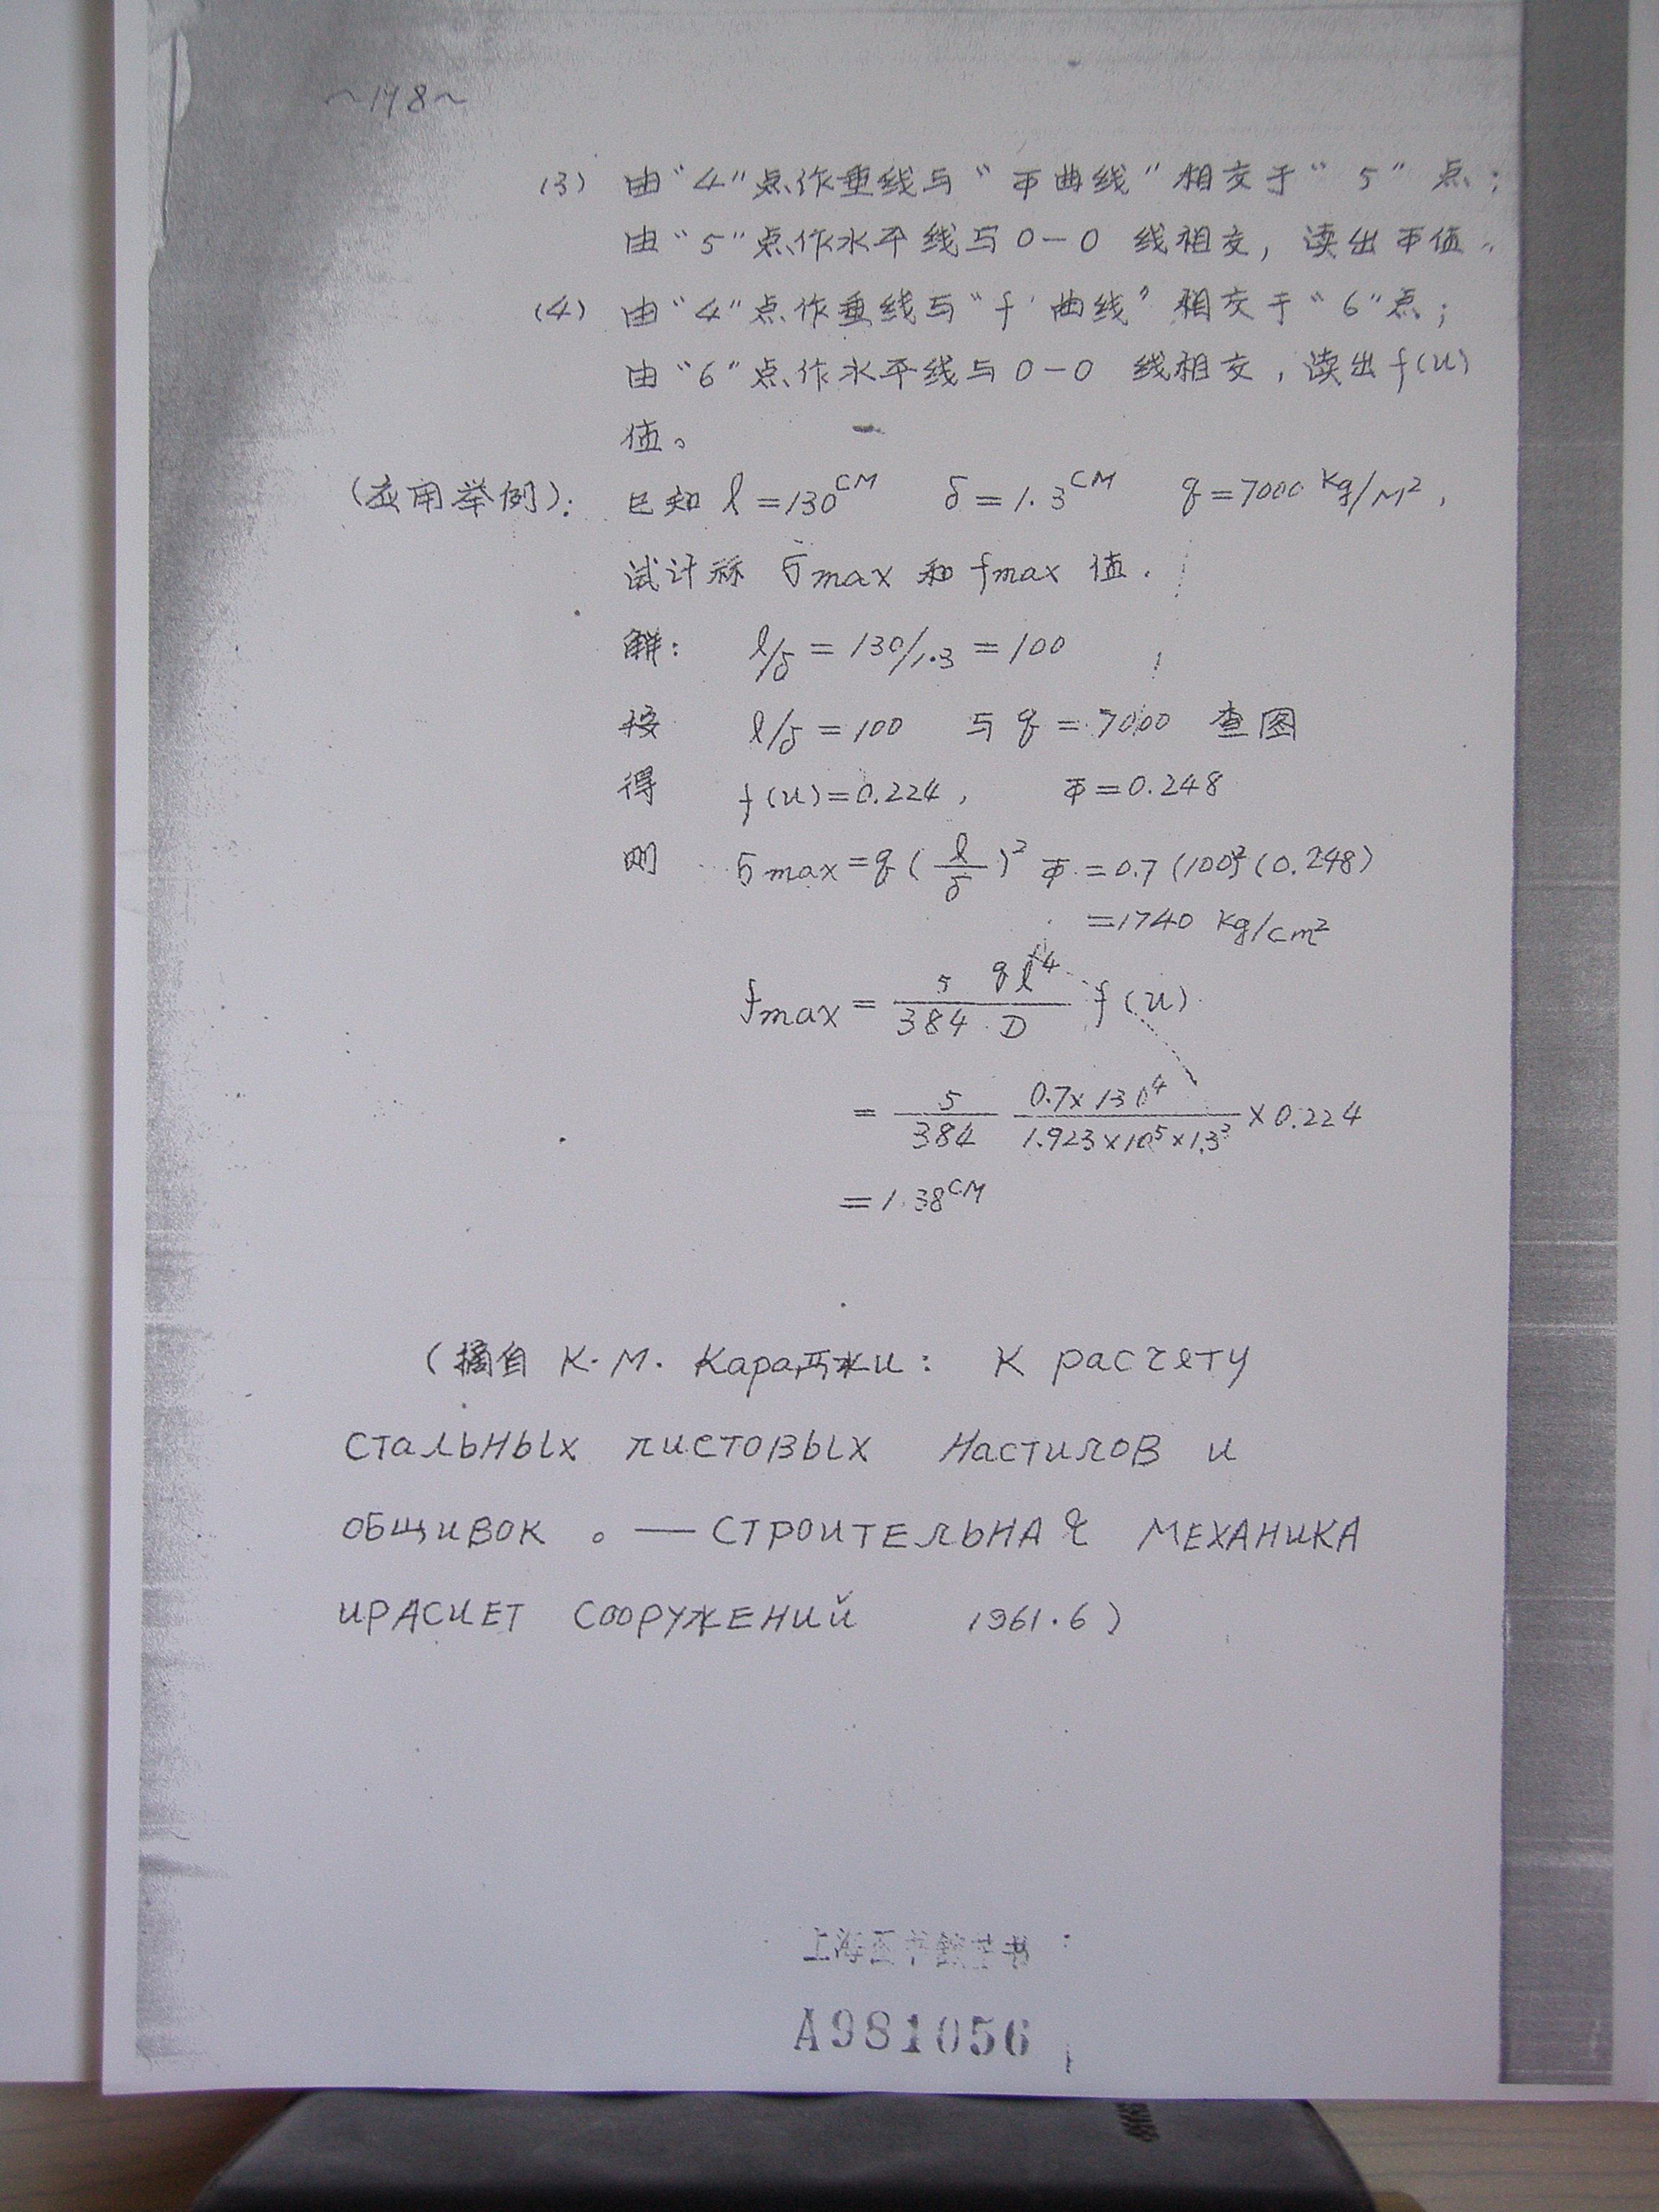 ~148~
(3) 由“4”点作垂线与“Φ曲线”相交于“5”点；
由“5”点作水平线与0—0 线相交，读出Φ值。
(4) 由“4”点作垂线与“f 曲线”相交于“6”点；
由“6”点作水平线与0—0 线相交，读出f(u)
值。
(应用举例)： 已知 l=130^CM δ=1.3^CM q=7000 kg/M²，
试计祘 σmax 和 fmax 值.
解： l/δ = 130/1.3 = 100
按 l/δ = 100 与 q = 7000 查图
得 f(u)=0.224， Φ=0.248
则 σmax = q(l/δ)² Φ = 0.7(100)²(0.248)
=1740 kg/cm²
fmax = 5/384 ql⁴/D f(u)
= 5/384 0.7×130⁴/1.923×10⁵×1.3³ ×0.224
=1.38^CM
(摘自 К.М. Караджи： К расчету
стальных листовых настилов и
обшивок 。—СТРОИТЕЛЬНАЯ МЕХАНИКА
ИРАСЧЕТ СООРУЖЕНИЙ 1961.6)
上海图书馆藏书
A981056